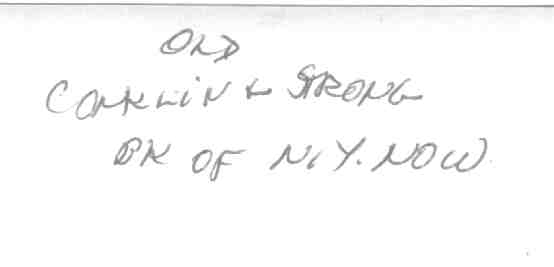 OLD
CONKLIN & STRONG
BK OF N.Y. NOW